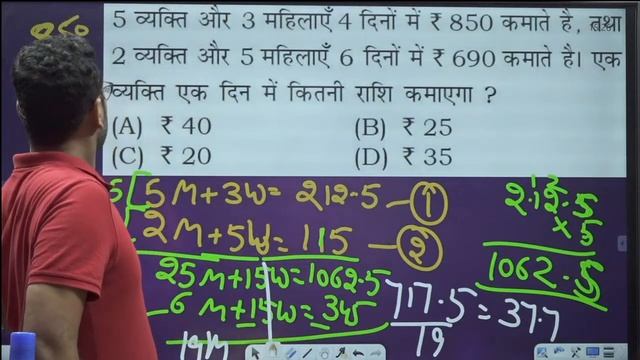 5 व्यक्ति और 3 महिलाएँ 4 दिनों में ₹ 850 कमाते है, तथा
2 व्यक्ति और 5 महिलाएँ 6 दिनों में ₹ 690 कमाते है। एक
व्यक्ति एक दिन में कितनी राशि कमाएगा ?
(A) ₹ 40 (B) ₹ 25
(C) ₹ 20 (D) ₹ 35
5M+3W= 212.5 —①
2M+5W= 115 —②
25M+15W=1062.5
6M+15W=345
19M
717.5/19 = 37.7
212.5
×5
1062.5